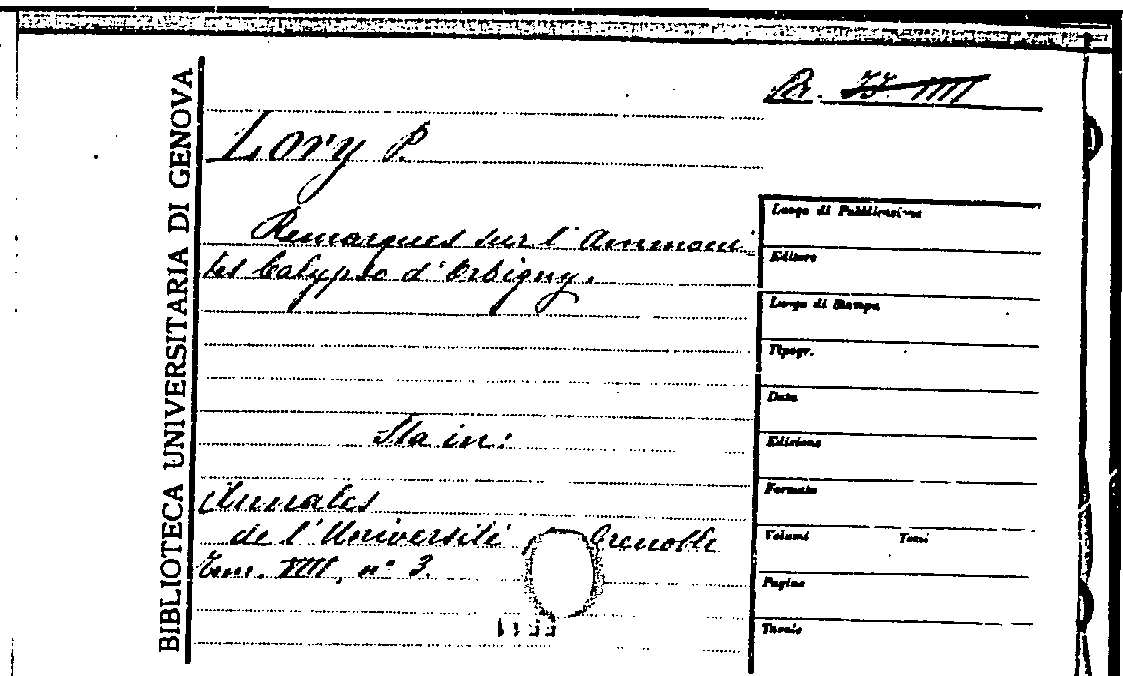 BIBLIOTECA UNIVERSITARIA DI GENOVA
Lory P.
Remarques sur l'Ammoni
tes Calypso d'Orbigny.
Sta in:
Annales
de l'Université Grenoble
Tom. XIII, n° 3.
Luogo di Pubblicazione
Editore
Luogo di Stampa
Tipogr.
Data
Edizione
Formato
Volumi Tomi
Pagine